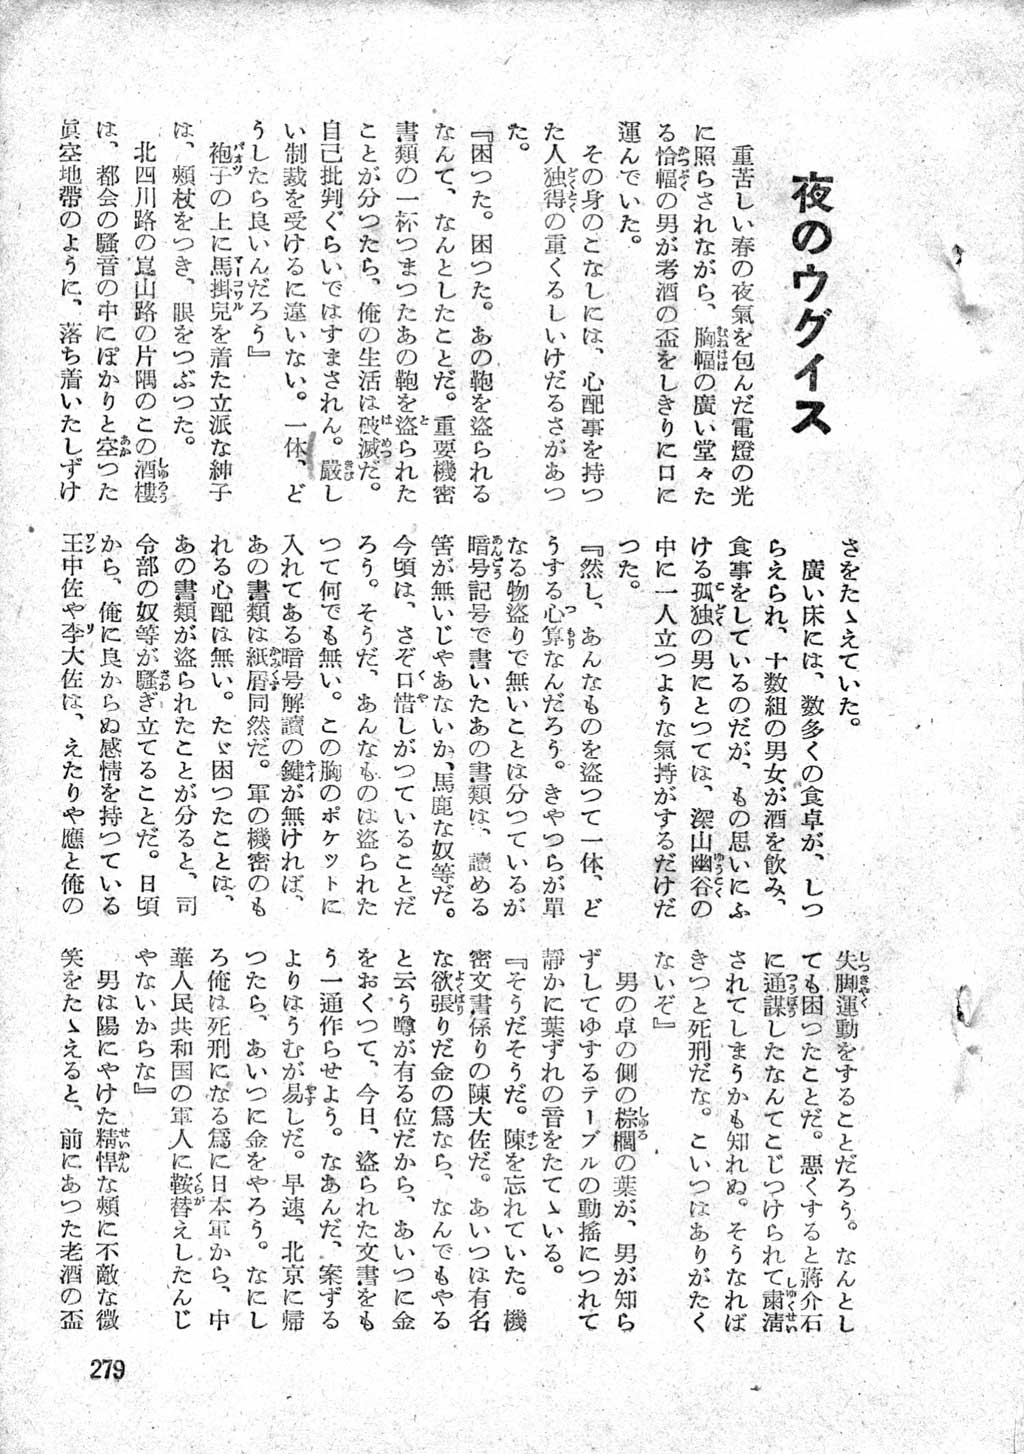 夜のウグイス
重苦しい春の夜氣を包んだ電燈の光
に照らされながら、胸幅の廣い堂々た
る恰幅の男が老酒の盃をしきりに口に
運んでいた。
その身のこなしには、心配事を持つ
た人独得の重くるしいけだるさがあつ
た。
『困つた。困つた。あの鞄を盗られる
なんて、なんとしたことだ。重要機密
書類の一杯つまつたあの鞄を盗られた
ことが分つたら、俺の生活は破滅だ。
自己批判ぐらいではすまされん。嚴し
い制裁を受けるに違いない。一体、ど
うしたら良いんだろう』
袍子の上に馬掛兒を着た立派な紳子
は、頰杖をつき、眼をつぶつた。
北四川路の崑山路の片隅のこの酒樓
は、都会の騷音の中にぽかりと空つた
眞空地帶のように、落ち着いたしずけ
さをたゝえていた。
廣い床には、数多くの食卓が、しつ
らえられ、十数組の男女が酒を飮み、
食事をしているのだが、もの思いにふ
ける孤独の男にとつては、深山幽谷の
中に一人立つような氣持がするだけだ
つた。
『然し、あんなものを盗つて一体、ど
うする心算なんだろう。きやつらが單
なる物盗りで無いことは分つているが
暗号記号で書いたあの書類は、讀める
筈が無いじやあないか、馬鹿な奴等だ。
今頃は、さぞ口惜しがつていることだ
ろう。そうだ、あんなものは盗られた
つて何でも無い。この胸のポケットに
入れてある暗号解讀の鍵が無ければ、
あの書類は紙屑同然だ。軍の機密のも
れる心配は無い。たゞ困つたことは、
あの書類が盗られたことが分ると、司
令部の奴等が騷ぎ立てることだ。日頃
から、俺に良からぬ感情を持つている
王中佐や李大佐は、えたりや應と俺の
失脚運動をすることだろう。なんとし
ても困つたことだ。悪くすると蔣介石
に通謀したなんてこじつけられて粛清
されてしまうかも知れぬ。そうなれば
きつと死刑だな。こいつはありがたく
ないぞ』
男の卓の側の棕櫚の葉が、男が知ら
ずしてゆするテーブルの動搖につれて
静かに葉ずれの音をたてゝいる。
『そうだそうだ。陳を忘れていた。機
密文書係りの陳大佐だ。あいつは有名
な欲張りだ金の爲なら、なんでもやる
と云う噂が有る位だから、あいつに金
をおくつて、今日、盗られた文書をも
う一通作らせよう。なあんだ、案ずる
よりはうむが易しだ。早速、北京に帰
つたら、あいつに金をやろう。なにし
ろ俺は死刑になる爲に日本軍から、中
華人民共和国の軍人に鞍替えしたんじ
やないからな』
男は陽にやけた精悍な頰に不敵な微
笑をたゝえると、前にあつた老酒の盃
279